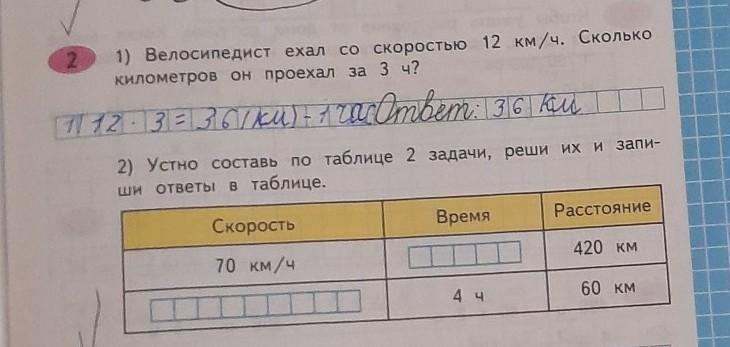 2
1) Велосипедист ехал со скоростью 12 км/ч. Сколько
километров он проехал за 3 ч?
1) 12 · 3 = 36 (км) - 1 час Ответ: 36 км
2) Устно составь по таблице 2 задачи, реши их и запи-
ши ответы в таблице.
Скорость Время Расстояние
70 км/ч 420 км
4 ч 60 км